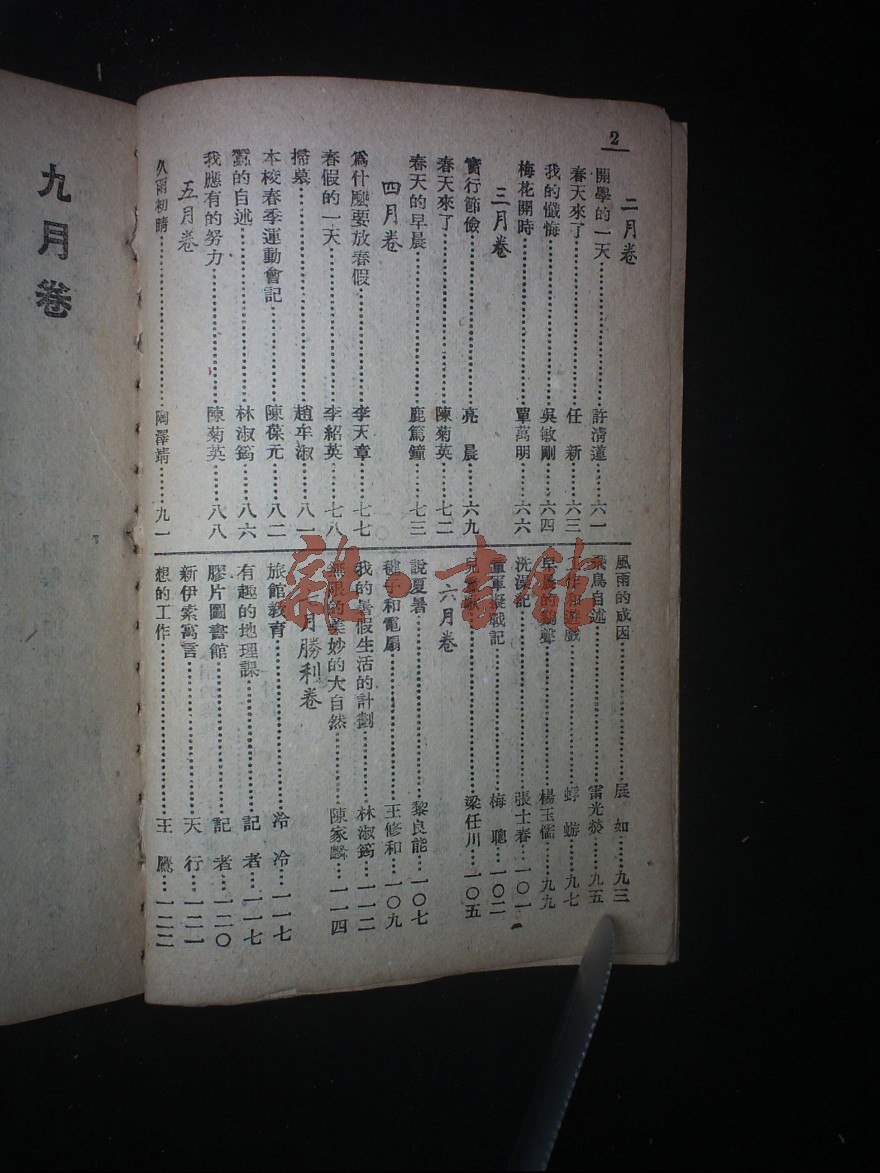 2
二月卷
開學的一天 許清蓮 六一
春天來了 任新 六三
我的懺悔 吳敏剛 六四
梅花開時 單萬明 六六
三月卷
實行節儉 亮晨 六九
春天來了 陳菊英 七二
春天的早晨 鹿篤鐘 七三
四月卷
爲什麼要放春假 李天章 七七
春假的一天 李紹英 七八
掃墓 趙牟淑 八一
本校春季運動會記 陳葆元 八二
蠶的自述 林淑筠 八六
我應有的努力 陳菊英 八八
五月卷
久雨初晴 陶澤靖 九一
風雨的成因 展如 九三
飛鳥自述 雷光熒 九五
遊戲 蜉蝣 九七
早晨的 聲 楊玉儒 九九
洗澡記 張士春 一〇一
童軍擬戰記 梅聰 一〇二
兒童歌 梁任川 一〇五
六月卷
說夏暑 黎良能 一〇七
毽子和電扇 王修和 一〇九
我的暑假生活的計劃 林淑筠 一一二
無限的美妙的大自然 陳家麟 一一四
月勝利卷
旅館教育 冷冷 一一七
有趣的地理課 記者 一一七
膠片圖書館 記者 一二〇
新伊索寓言 天行 一二一
想的工作 王鷹 一二二
九月卷
雜·書館